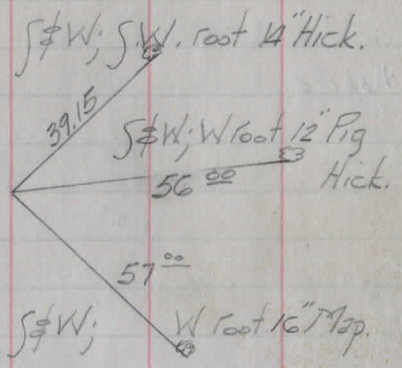 S&W; S.W. root 14" Hick.
39.15
S&W; W root 12" Pig
Hick.
56 00
57 00
S&W; W root 16" Map.